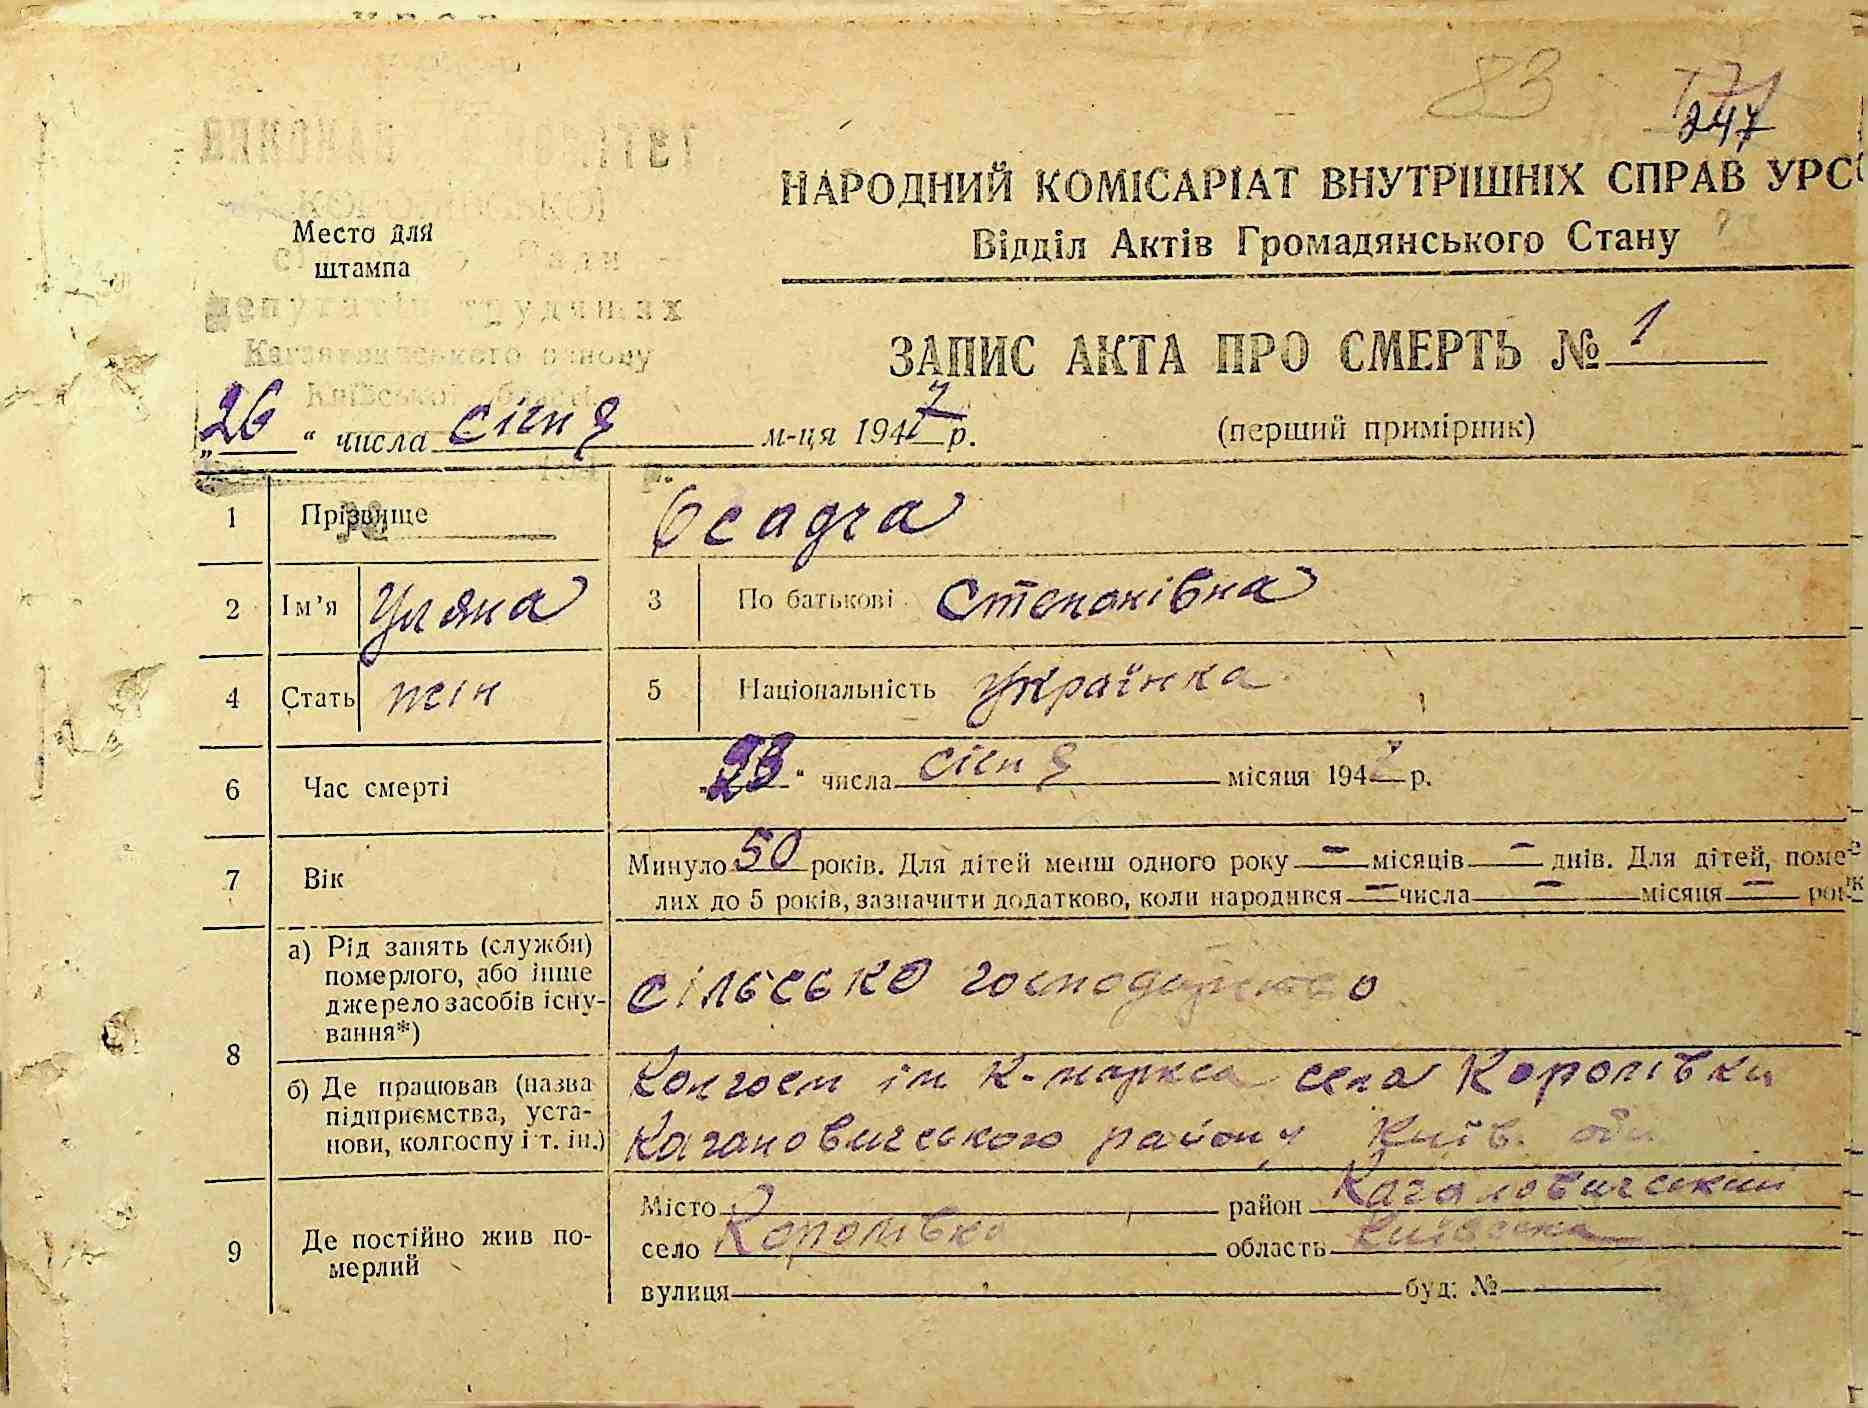 83
247
КОМІТЕТ
НАРОДНИЙ КОМІСАРІАТ ВНУТРІШНІХ СПРАВ УРСР
Відділ Актів Громадянського Стану
Место для
штампа
депутатів трудящих
Кагановичського району
Київської області
ЗАПИС АКТА ПРО СМЕРТЬ № 1
„26“ числа січня м-ця 1947 р. (перший примірник)
1 Прізвище Осадча
2 Ім’я Уляна 3 По батькові Степанівна
4 Стать жін 5 Національність українка
6 Час смерті „23“ числа січня місяця 1947 р.
7 Вік Минуло 50 років. Для дітей менш одного року — місяців — днів. Для дітей, поме-
лих до 5 років, зазначити додатково, коли народився — числа — місяця — рок
8 а) Рід занять (служби)
померлого, або інше
джерело засобів існу-
вання*)
сільсько господарство
б) Де працював (назва
підприємства, уста-
нови, колгоспу і т. ін.)
Колгосп ім К-маркса села Королівки
Кагановичського району Київ. обл
9 Де постійно жив по-
мерлий
Місто район Кагановичський
село Королівка область Київська
вулиця буд. №